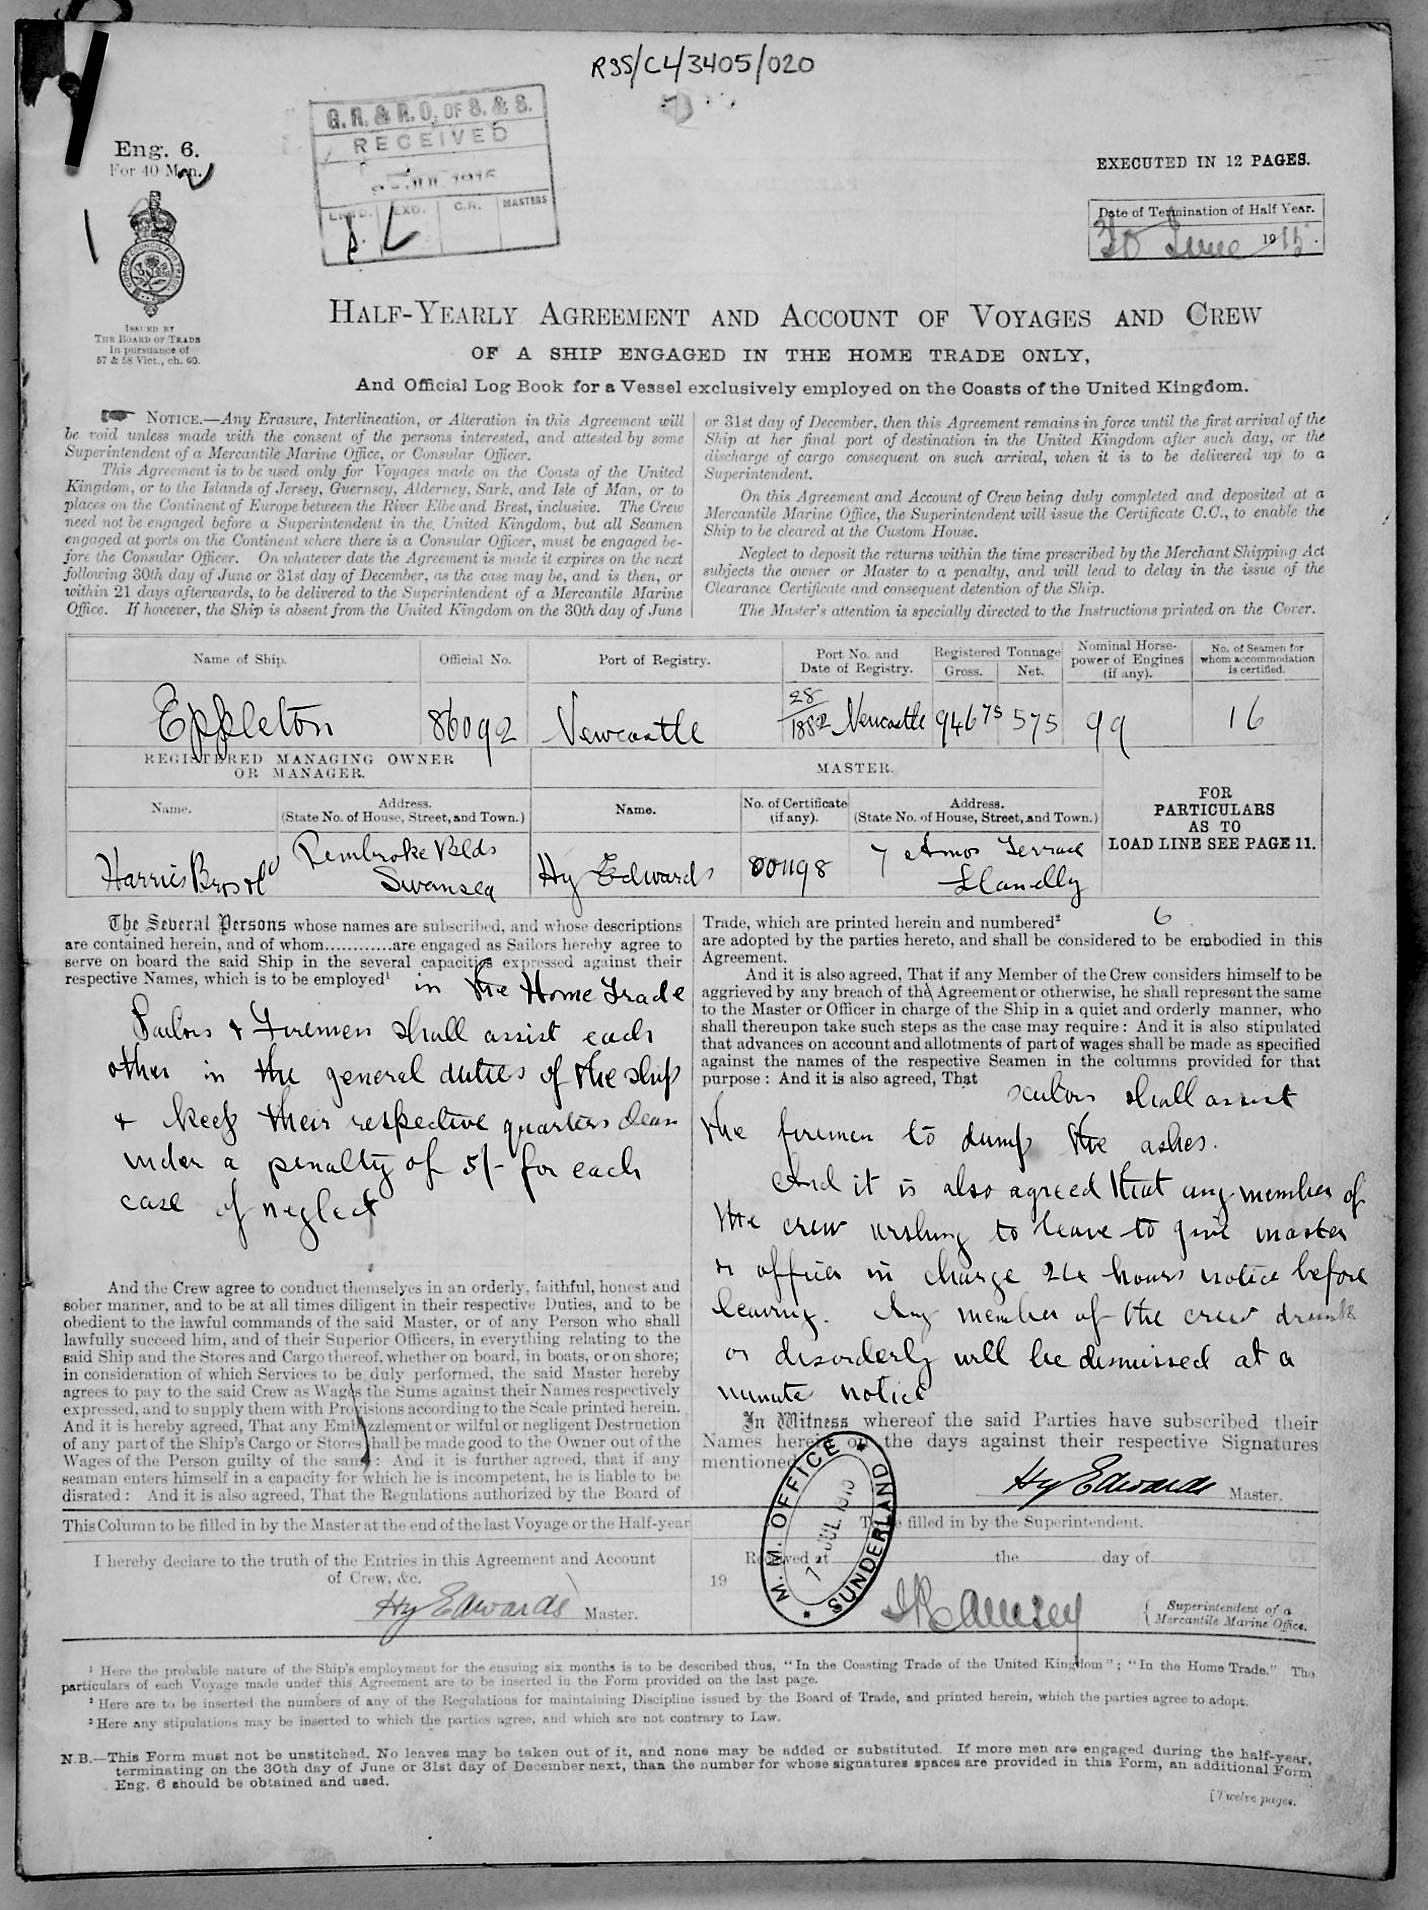 RSS/CL/3405/020
G. R. & R. O. OF S. & S.
RECEIVED
JUL 1915
EXD. C.R. MASTERS
L
Eng. 6.
For 40 Men.
EXECUTED IN 12 PAGES.
Date of Termination of Half Year.
30 June 1915.
ISSUED BY
THE BOARD OF TRADE
In pursuance of
57 & 58 Vict., ch. 60.
HALF-YEARLY AGREEMENT AND ACCOUNT OF VOYAGES AND CREW
OF A SHIP ENGAGED IN THE HOME TRADE ONLY,
And Official Log Book for a Vessel exclusively employed on the Coasts of the United Kingdom.
NOTICE.—Any Erasure, Interlineation, or Alteration in this Agreement will
be void unless made with the consent of the persons interested, and attested by some
Superintendent of a Mercantile Marine Office, or Consular Officer.
This Agreement is to be used only for Voyages made on the Coasts of the United
Kingdom, or to the Islands of Jersey, Guernsey, Alderney, Sark, and Isle of Man, or to
places on the Continent of Europe between the River Elbe and Brest, inclusive. The Crew
need not be engaged before a Superintendent in the United Kingdom, but all Seamen
engaged at ports on the Continent where there is a Consular Officer, must be engaged be-
fore the Consular Officer. On whatever date the Agreement is made it expires on the next
following 30th day of June or 31st day of December, as the case may be, and is then, or
within 21 days afterwards, to be delivered to the Superintendent of a Mercantile Marine
Office. If however, the Ship is absent from the United Kingdom on the 30th day of June
or 31st day of December, then this Agreement remains in force until the first arrival of the
Ship at her final port of destination in the United Kingdom after such day, or the
discharge of cargo consequent on such arrival, when it is to be delivered up to a
Superintendent.
On this Agreement and Account of Crew being duly completed and deposited at a
Mercantile Marine Office, the Superintendent will issue the Certificate C.C., to enable the
Ship to be cleared at the Custom House.
Neglect to deposit the returns within the time prescribed by the Merchant Shipping Act
subjects the owner or Master to a penalty, and will lead to delay in the issue of the
Clearance Certificate and consequent detention of the Ship.
The Master's attention is specially directed to the Instructions printed on the Cover.
Name of Ship. Official No. Port of Registry. Port No. and Date of Registry. Registered Tonnage Gross. Net. Nominal Horse-power of Engines (if any). No. of Seamen for whom accommodation is certified.
Eppleton 86092 Newcastle 28/1882 Newcastle 946 75 575 99 16
REGISTERED MANAGING OWNER
OR MANAGER.
MASTER.
Name. Address. (State No. of House, Street, and Town.) Name. No. of Certificate (if any). Address. (State No. of House, Street, and Town.)
FOR
PARTICULARS
AS TO
LOAD LINE SEE PAGE 11.
Harries Bros Ld Pembroke Blds Swansea Hy Edwards 00498 7 Amos Terrace Llanelly
The Several Persons whose names are subscribed, and whose descriptions
are contained herein, and of whom............are engaged as Sailors hereby agree to
serve on board the said Ship in the several capacities expressed against their
respective Names, which is to be employed¹ in the Home Trade
Sailors & Firemen shall assist each
other in the general duties of the ship
& keep their respective quarters clean
under a penalty of 5/- for each
case of neglect
And the Crew agree to conduct themselves in an orderly, faithful, honest and
sober manner, and to be at all times diligent in their respective Duties, and to be
obedient to the lawful commands of the said Master, or of any Person who shall
lawfully succeed him, and of their Superior Officers, in everything relating to the
said Ship and the Stores and Cargo thereof, whether on board, in boats, or on shore;
in consideration of which Services to be duly performed, the said Master hereby
agrees to pay to the said Crew as Wages the Sums against their Names respectively
expressed, and to supply them with Provisions according to the Scale printed herein.
And it is hereby agreed, That any Embezzlement or wilful or negligent Destruction
of any part of the Ship's Cargo or Stores shall be made good to the Owner out of the
Wages of the Person guilty of the same: And it is further agreed, that if any
seaman enters himself in a capacity for which he is incompetent, he is liable to be
disrated: And it is also agreed, That the Regulations authorized by the Board of
Trade, which are printed herein and numbered² 6
are adopted by the parties hereto, and shall be considered to be embodied in this
Agreement.
And it is also agreed, That if any Member of the Crew considers himself to be
aggrieved by any breach of the Agreement or otherwise, he shall represent the same
to the Master or Officer in charge of the Ship in a quiet and orderly manner, who
shall thereupon take such steps as the case may require: And it is also stipulated
that advances on account and allotments of part of wages shall be made as specified
against the names of the respective Seamen in the columns provided for that
purpose: And it is also agreed, That sailors shall assist
the firemen to dump the ashes.
And it is also agreed that any member of
the crew wishing to leave to give master
or officer in charge 24 hours notice before
leaving. Any member of the crew drunk
or disorderly will be dismissed at a
minute notice
In Witness whereof the said Parties have subscribed their
Names herein on the days against their respective Signatures
mentioned
Hy Edwards Master.
This Column to be filled in by the Master at the end of the last Voyage or the Half-year
I hereby declare to the truth of the Entries in this Agreement and Account
of Crew, &c.
Hy Edwards Master.
To be filled in by the Superintendent.
Received at the day of
19
M. M. OFFICE
7 JUL 1915
SUNDERLAND
Superintendent of a
Mercantile Marine Office.
¹ Here the probable nature of the Ship's employment for the ensuing six months is to be described thus, "In the Coasting Trade of the United Kingdom"; "In the Home Trade." The
particulars of each Voyage made under this Agreement are to be inserted in the Form provided on the last page.
² Here are to be inserted the numbers of any of the Regulations for maintaining Discipline issued by the Board of Trade, and printed herein, which the parties agree to adopt.
³ Here any stipulations may be inserted to which the parties agree, and which are not contrary to Law.
N.B.—This Form must not be unstitched. No leaves may be taken out of it, and none may be added or substituted. If more men are engaged during the half-year,
terminating on the 30th day of June or 31st day of December next, than the number for whose signatures spaces are provided in this Form, an additional Form
Eng. 6 should be obtained and used.
[Twelve pages.